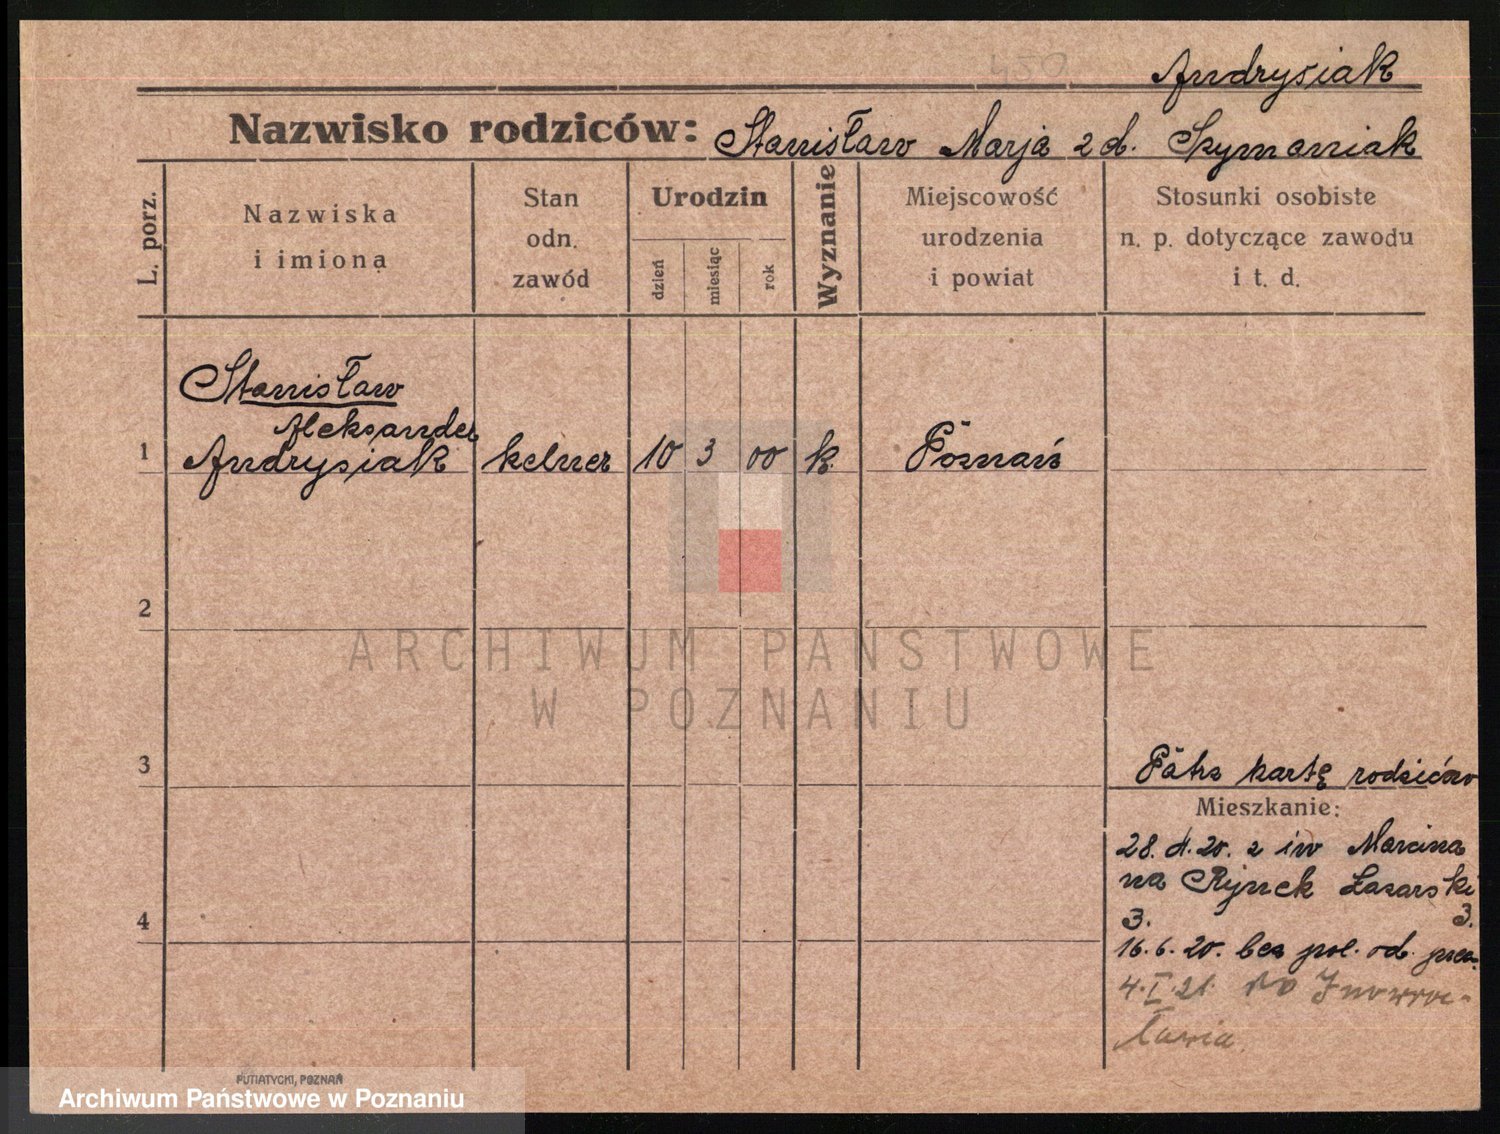 450
Andrysiak
Nazwisko rodziców: Stanisław Marja z d. Szymaniak
L. porz.
Nazwiska
i imiona
Stan
odn.
zawód
Urodzin
dzień
miesiąc
rok
Wyznanie
Miejscowość
urodzenia
i powiat
Stosunki osobiste
n. p. dotyczące zawodu
i t. d.
Stanisław
Aleksander
1 Andrysiak kelner 10 3 00 k. Poznań
2
ARCHIWUM PAŃSTWOWE
W POZNANIU
3
Patrz kartę rodziców
Mieszkanie:
28. 4. 20. z św Marcina
na Rynek Łazarski
3. 3.
4
16. 6. 20. bez pol. od.
4. I. 21. do Inowroc-
ławia.
PUTIATYCKI, POZNAŃ
Archiwum Państwowe w Poznaniu